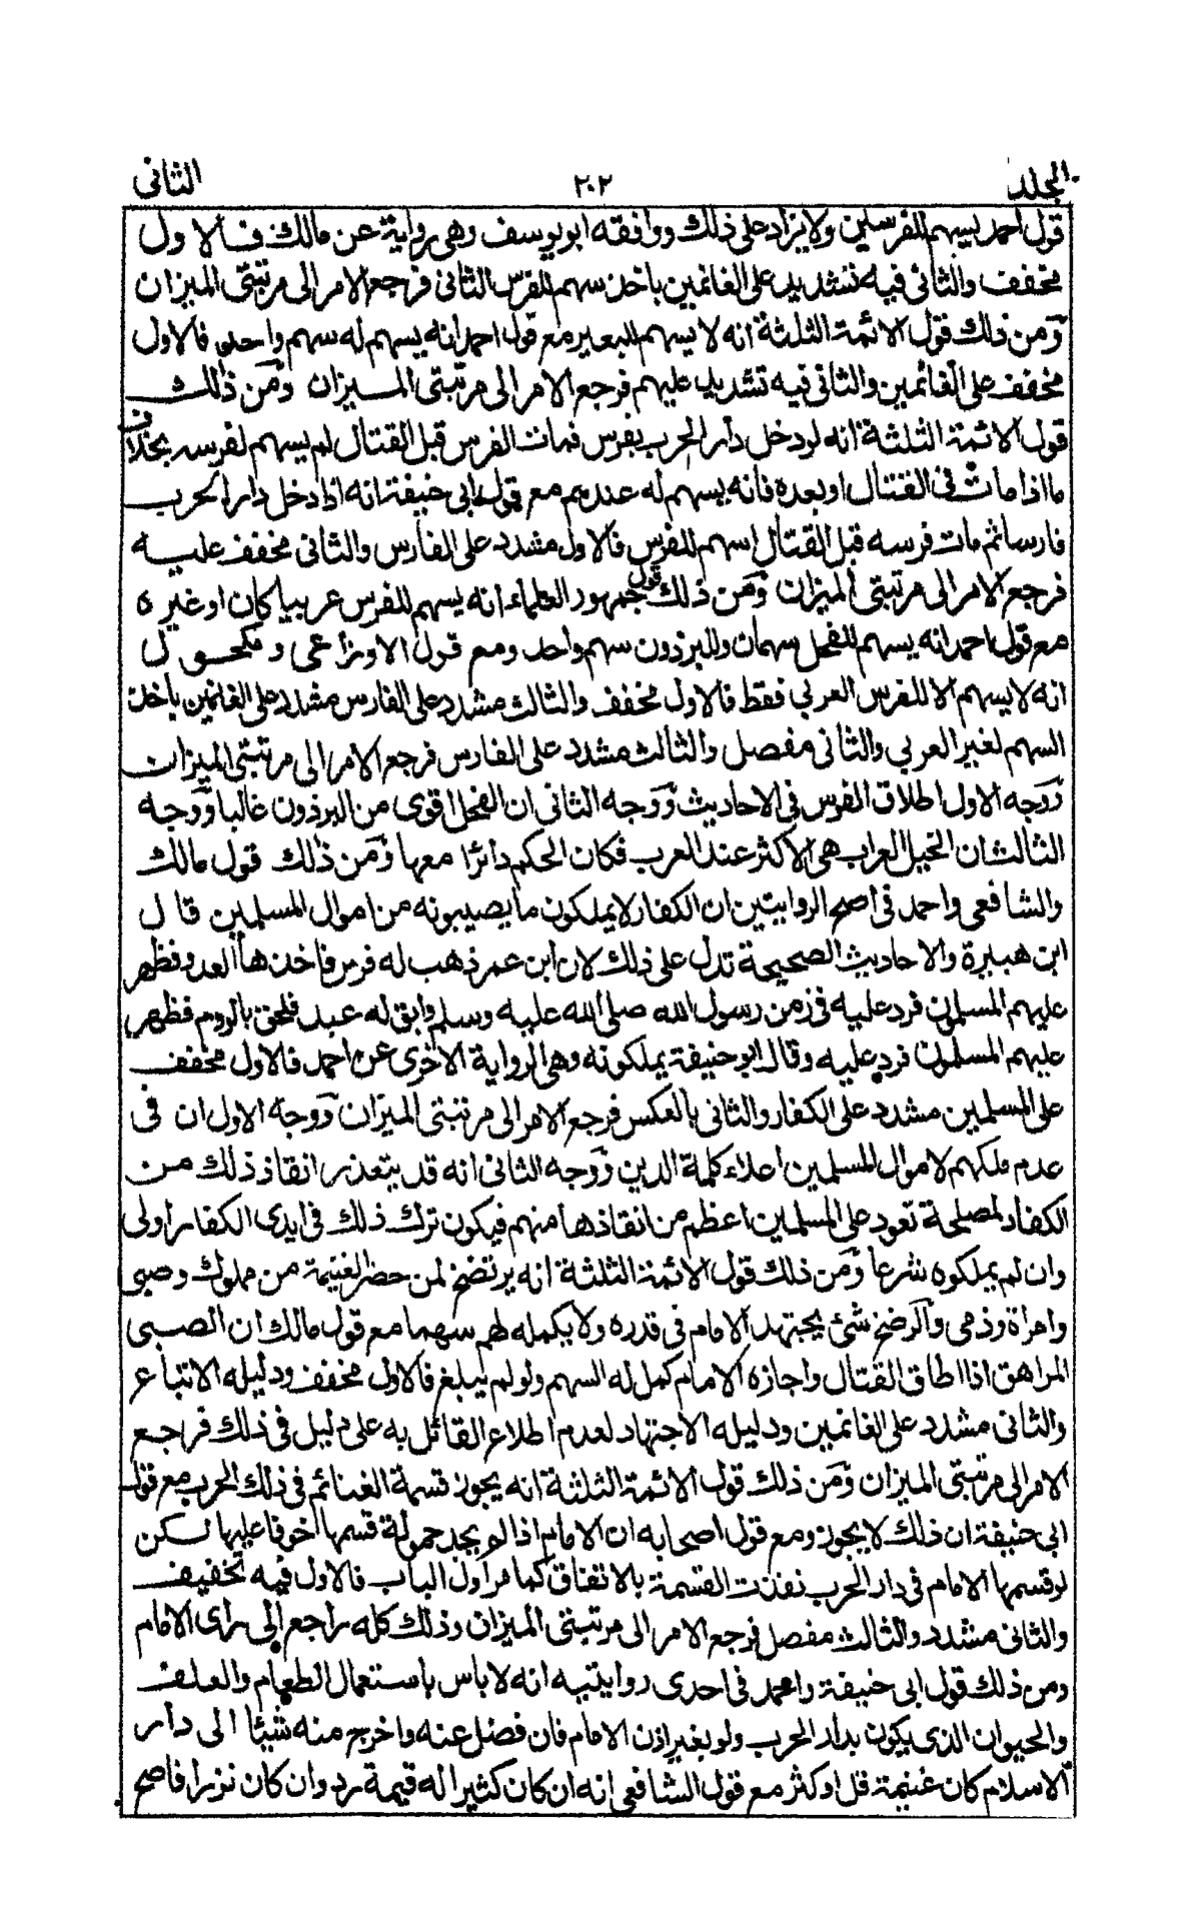 المجلد ٢٠٢ الثانى
قول احمد يسهم للفرسلين ولايزاد على ذلك ووافقه ابويوسف وهى رواية عن مالك فالاول
مخفف والثانى فيه تشديد على الغانمين باخذ سهم للفرس الثانى فرجع الامر الى مرتبتى الميزان
ومن ذلك قول الائمة الثلثة انه لا يسهم للبعير مع قول احمد انه يسهم له سهم واحد فالاول
مخفف على الغانمين والثانى فيه تشديد عليهم فرجع الامر الى مرتبتى الميزان ومن ذلك
قول الائمة الثلثة انه لودخل دار الحرب بفرس فمات الفرس قبل القتال لم يسهم لفرسه بخلاف
مااذا مات فى القتال او بعده فانه يسهم له عندهم مع قول ابى حنيفة انه اذا دخل دار الحرب
فارسا ثم مات فرسه قبل القتال اسهم للفرس فالاول مشدد على الفارس والثانى مخفف عليه
فرجع الامر الى مرتبتى الميزان ومن ذلك قول جمهور العلماء انه يسهم للفرس عربيا كان او غيره
مع قول احمد انه يسهم للفحل سهمان وللبرذون سهم واحد ومع قول الاوزاعى و مكحول
انه لا يسهم الا للفرس العربي فقط فالاول مخفف والثالث مشدد على الفارس مشدد على الغانمين باخذ
السهم لغير العربي والثانى مفصل والثالث مشدد على الفارس فرجع الامر الى مرتبتى الميزان
ووجه الاول اطلاق الفرس فى الاحاديث ووجه الثانى ان الفحل اقوى من البرذون غالبا ووجه
الثالث ان الخيل العراب هى الاكثر عند العرب فكان الحكم دائرا معها ومن ذلك قول مالك
والشافعى واحمد فى اصح الروايتين ان الكفار لايملكون مايصيبونه من اموال المسلمين قال
ابن هبيرة والاحاديث الصحيحة تدل على ذلك لان ابن عمر ذهب له فرس فاخذها العدو فظهر
عليهم المسلمون فرد عليه فى زمن رسول الله صلى الله عليه وسلم وابق له عبد فلحق بالروم فظهر
عليهم المسلمون فرد عليه وقال ابو حنيفة يملكونه وهى الرواية الاخرى عن احمد فالاول مخفف
على المسلمين مشدد على الكفار والثانى بالعكس فرجع الامر الى مرتبتى الميزان ووجه الاول ان فى
عدم ملكهم لاموال المسلمين اعلاء كلمة الدين ووجه الثانى انه قد يتعذر انقاذ ذلك من
الكفار لمصلحة تعود على المسلمين اعظم من انقاذها منهم فيكون ترك ذلك فى ايدى الكفار اولى
وان لم يملكوه شرعا ومن ذلك قول الائمة الثلثة انه يرتضخ لمن حضر الغنيمة من مملوك وصبى
وامراة وذمى والرضخ شئ يجتهد الامام فى قدره ولا يكمله لهم سهما مع قول مالك ان الصبى
المراهق اذا اطاق القتال واجازه الامام كمل له السهم ولو لم يبلغ فالاول مخفف ودليله الاتباع
والثانى مشدد على الغانمين ودليله الاجتهاد لعدم اطلاع القائل به على دليل فى ذلك فراجع
الامر الى مرتبتى الميزان ومن ذلك قول الائمة الثلثة انه يجوز قسمة الغنائم فى ذلك الحرب مع قول
ابى حنيفة ان ذلك لا يجوز ومع قول اصحابه ان الامام اذا لم يجد حمولة قسمها خوفا عليها لكن
لو قسمها الامام فى دار الحرب نفذت القسمة بالاتفاق كما مر اول الباب فالاول فيه تخفيف
والثانى مشدد والثالث مفصل فرجع الامر الى مرتبتى الميزان وذلك كله راجع الى راى الامام
ومن ذلك قول ابى حنيفة واحمد فى احدى روايتيه انه لا باس باستعمال الطعام والعلف
والحيوان الذى يكون بدار الحرب ولو بغير اذن الامام فان فضل عنه واخرج منه شيئا الى دار
الاسلام كان غنيمة قل او كثر مع قول الشافعى انه ان كان كثيرا له قيمة رد وان كان نزرا فاصح